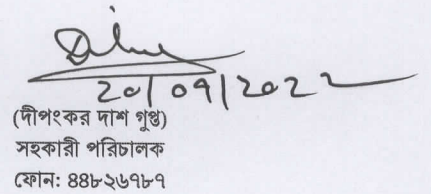 20/09/2022
(দীপংকর দাশ গুপ্ত)
সহকারী পরিচালক
ফোন: ৪৪৮২৬৭৮৭